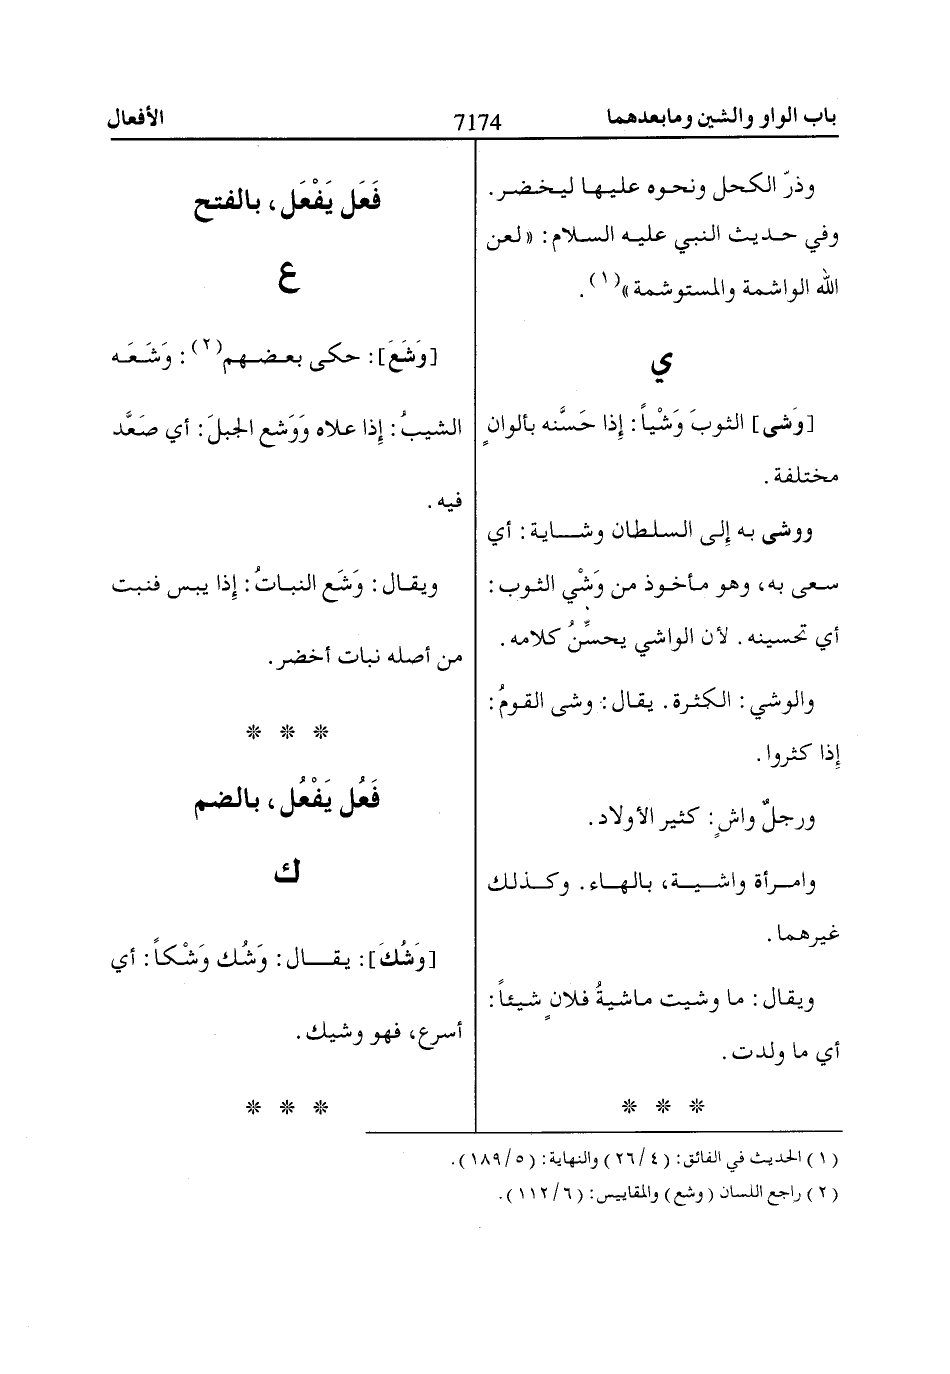 باب الواو والشين ومابعدهما
7174
الأفعال
وذرّ الكحل ونحوه عليها ليخضر.
وفي حديث النبي عليه السلام: «لعن
الله الواشمة والمستوشمة»(١).
ي
[وَشى] الثوبَ وَشْياً: إذا حَسَّنه بألوانٍ
مختلفة.
ووشى به إلى السلطان وشاية: أي
سعى به، وهو مأخوذ من وَشْي الثوب:
أي تحسينه. لأن الواشي يحسِّنُ كلامه.
والوشي: الكثرة. يقال: وشى القومُ:
إذا كثروا.
ورجلٌ واشٍ: كثير الأولاد.
وامرأة واشية، بالهاء. وكذلك
غيرهما.
ويقال: ما وشيت ماشيةُ فلانٍ شيئاً:
أي ما ولدت.
* * *
فَعَل يَفْعَل، بالفتح
ع
[وَشَعَ]: حكى بعضهم(٢): وَشَعَه
الشيبُ: إذا علاه وَوَشع الجبلَ: أي صَعَّد
فيه.
ويقال: وَشَع النباتُ: إذا يبس فنبت
من أصله نبات أخضر.
* * *
فَعُل يَفْعُل، بالضم
ك
[وَشُكَ]: يقال: وَشُك وَشْكاً: أي
أسرع، فهو وشيك.
* * *
(١) الحديث في الفائق: (٤/٢٦) والنهاية: (٥/١٨٩).
(٢) راجع اللسان (وشع) والمقاييس: (٦/١١٢).